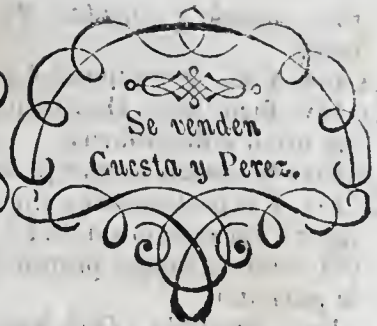 Se venden
Cuesta y Perez.